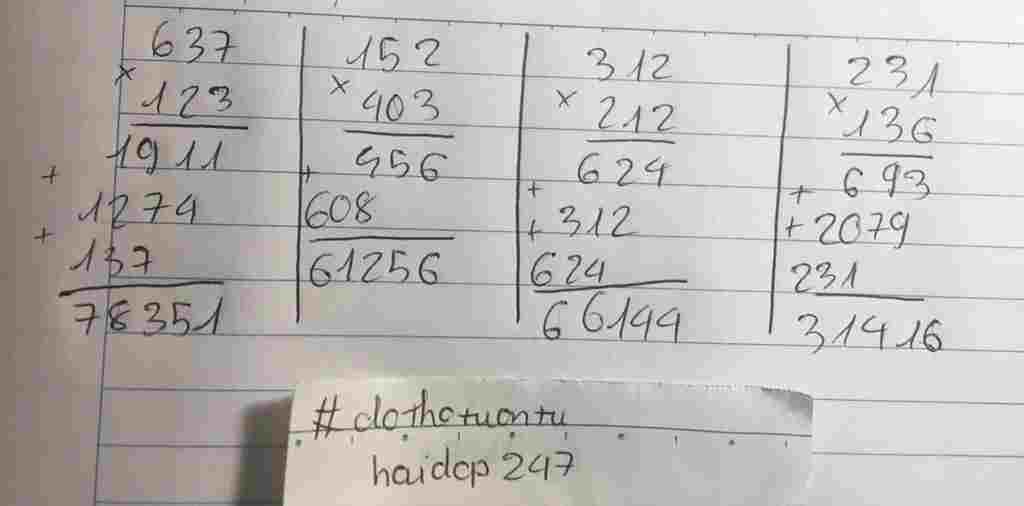 637
×
123
1911
+
1274
+
137
78351
152
×
403
456
+
608
61256
312
×
212
624
+
312
+
624
66144
231
×
136
693
+
2079
+
231
31416
#dothetuantu
haidep 247